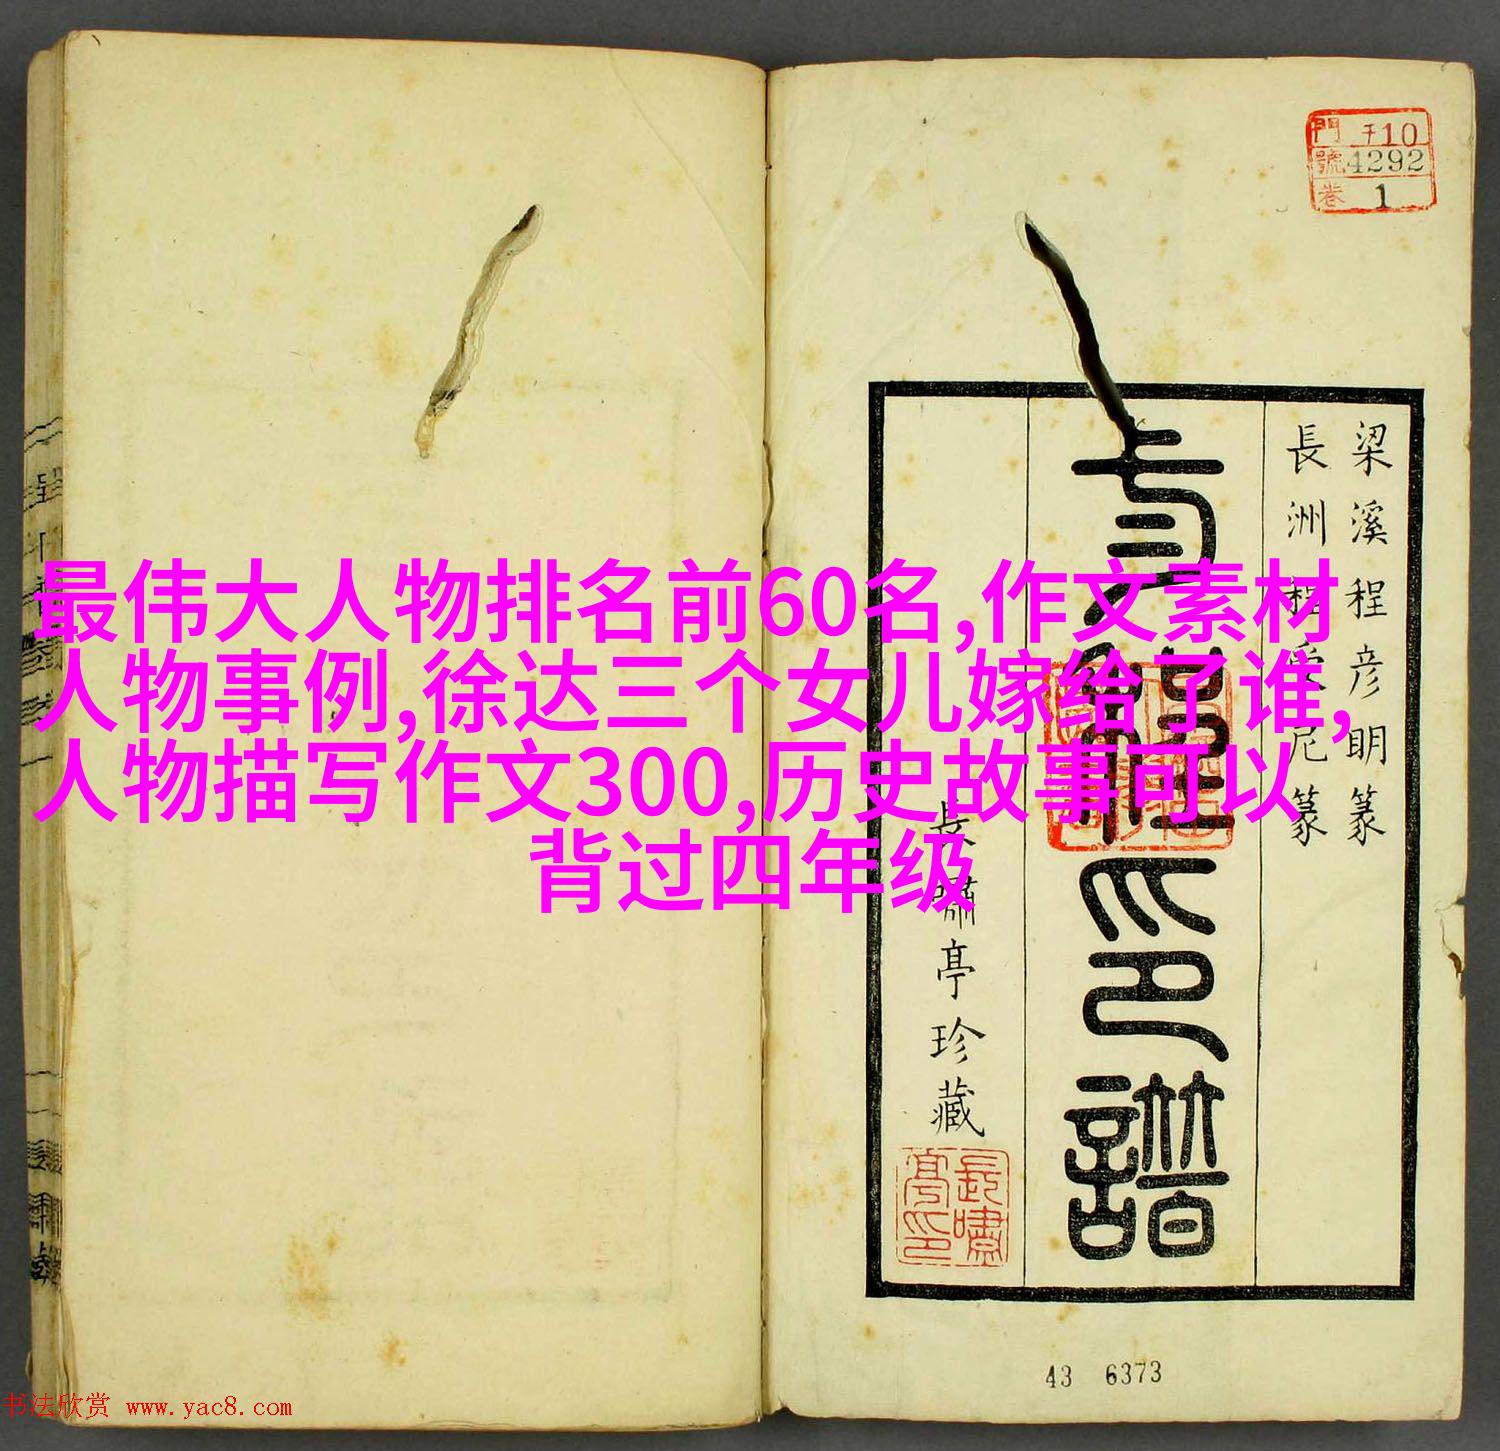 最伟大人物排名前60名,作文素材
人物事例,徐达三个女儿嫁给了谁,
人物描写作文300,历史故事可以
背过四年级
門 千10
號 4292
卷 1
梁溪程彦明篆
長洲程受尼篆
印譜
長嘯亭珍藏
長嘯亭印
43 6373
书法欣赏 www.yac8.com